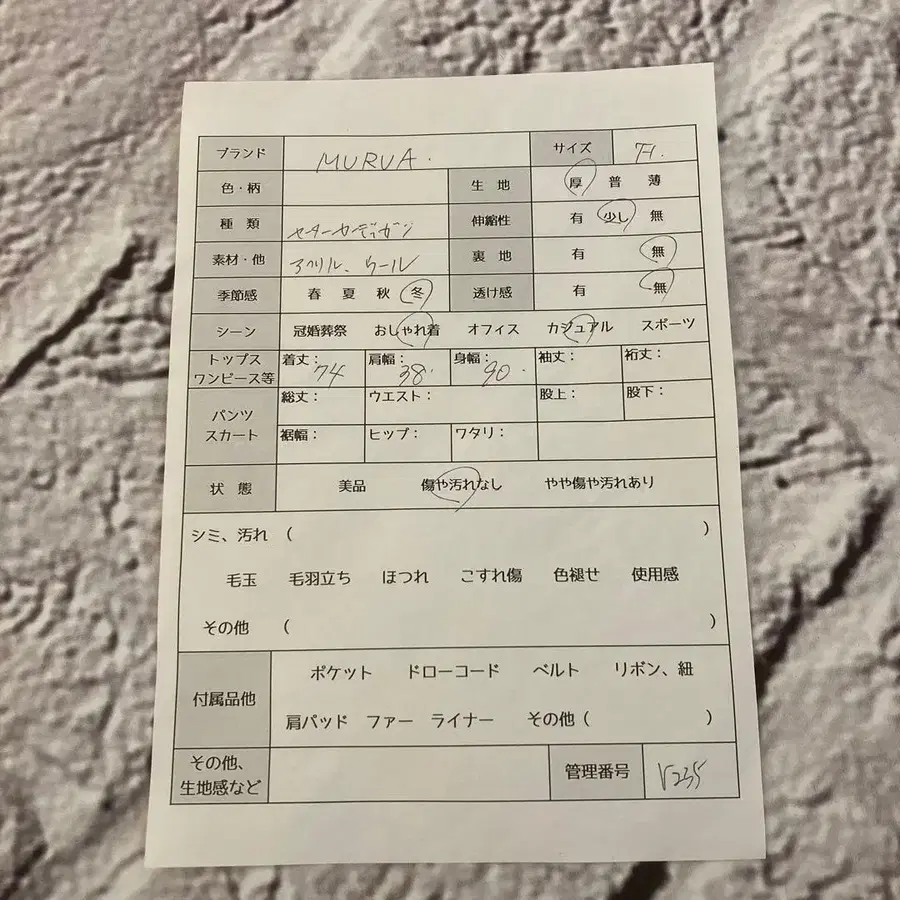 ブランド MURUA. サイズ
色・柄 生地 厚 普 薄
種類 セーターカーディガン 伸縮性 有 少し 無
素材・他 アクリル、ウール 裏地 有 無
季節感 春 夏 秋 冬 透け感 有 無
シーン 冠婚葬祭 おしゃれ着 オフィス カジュアル スポーツ
トップス ワンピース等 着丈: 74 肩幅: 38. 身幅: 90. 袖丈: 裄丈:
パンツ スカート 総丈: ウエスト: 股上: 股下:
裾幅: ヒップ: ワタリ:
状態 美品 傷や汚れなし やや傷や汚れあり
シミ、汚れ ( )
毛玉 毛羽立ち ほつれ こすれ傷 色褪せ 使用感
その他 ( )
付属品他 ポケット ドローコード ベルト リボン、紐
肩パッド ファー ライナー その他 ( )
その他、生地感など 管理番号 V235